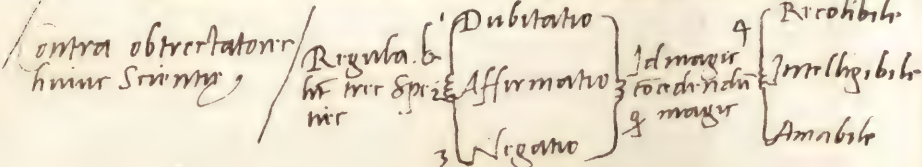 Contra obtrectatores
huius Scientie,
Regula. b
ht tres Spe
cies
1 Dubitatio
2 Affirmatio
3 Negatio
Id magis
cōcedendū
q̄ magis
4
Recolibile
Intelligibile
Amabile